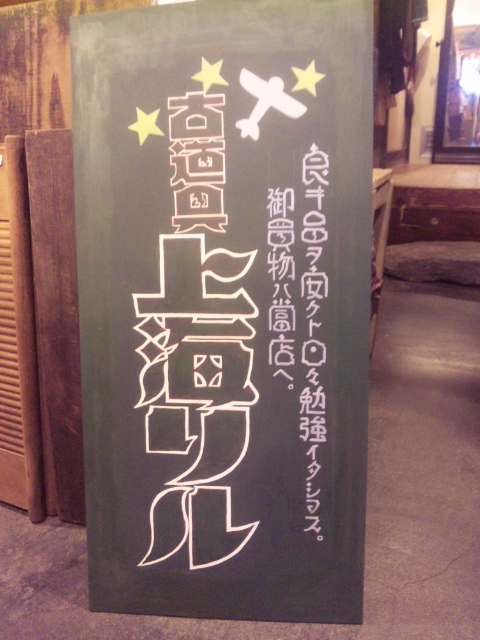 良キ品ヲ安クト日々勉強イタシマス。
御買物ハ當店へ。
古道具
上海リル